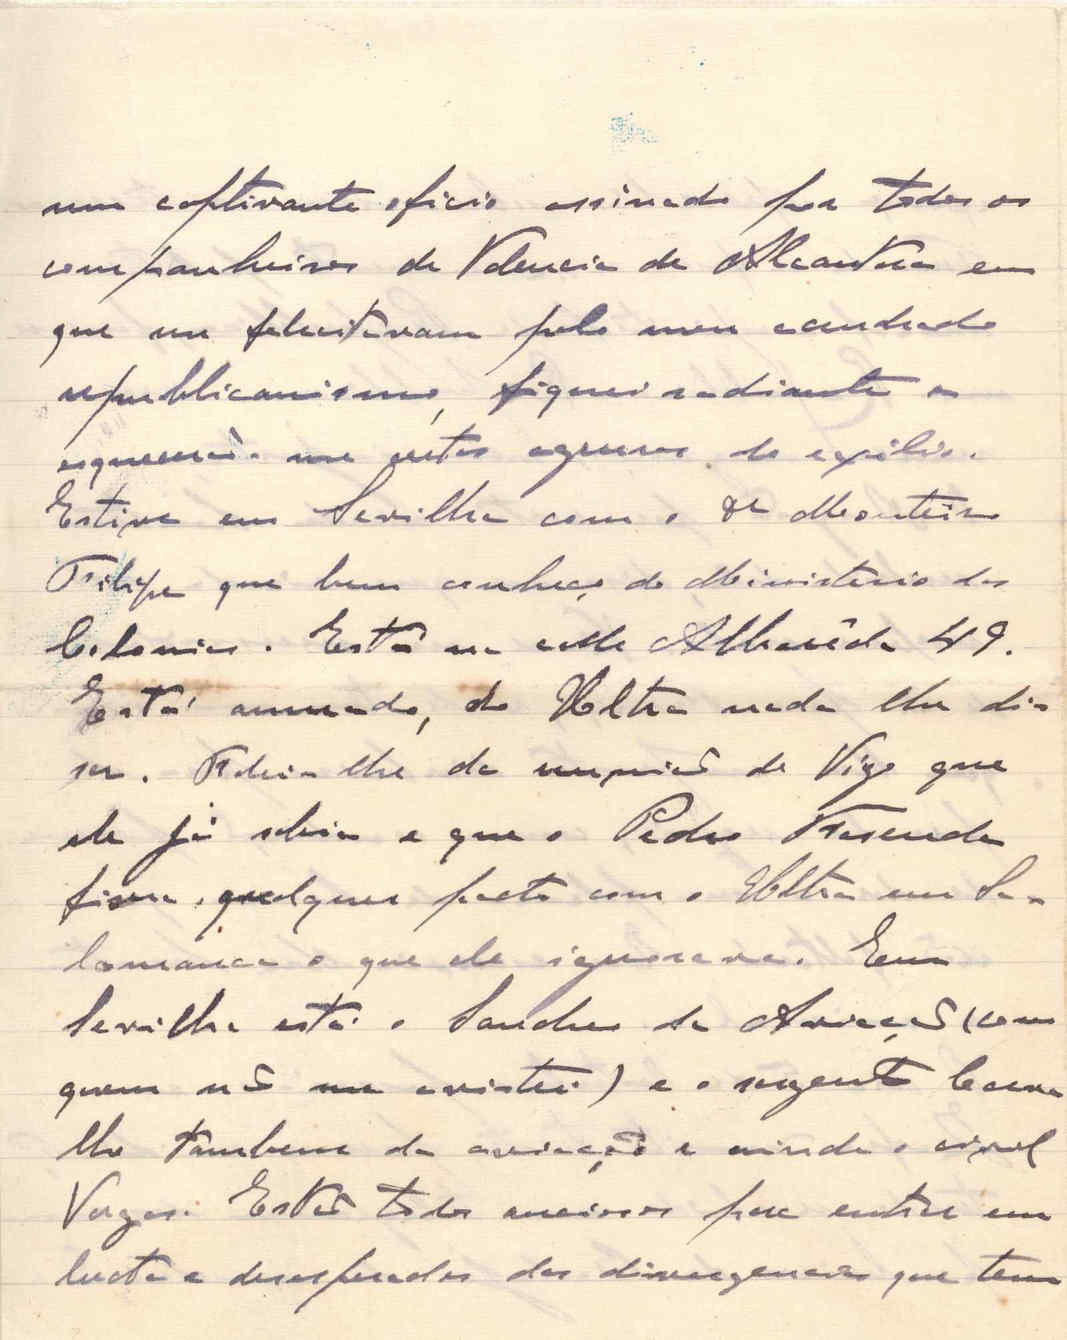 um captivante oficio assinado por todos os
companheiros de Valencia de Alcantara em
que me felicitavam pelo meu acendrado
republicanismo, fiquei radiante e
esqueceu-me estes agruras do exilio.
Estive em Sevilha com o Dr Monteiro
Filipe que bem conheço do Ministerio das
Colonias. Está na calle Albarêda 49.
Está animado, do Ultra nada lhe dis-
se. Falei-lhe da reunião de Vigo que
ele já sabia e que o Pedro Resende
fizera qualquer pacto com o Ultra em Sa-
lamanca o que ele ignorava. Em
Sevilha está o Sanches da Aviação (com
quem não me avistei) e o sargento Carva
lho tambem da aviação e ainda o civil
Vargas. Estão todos anciosos para entrar em
lucta e desesperados das divergencias que tem